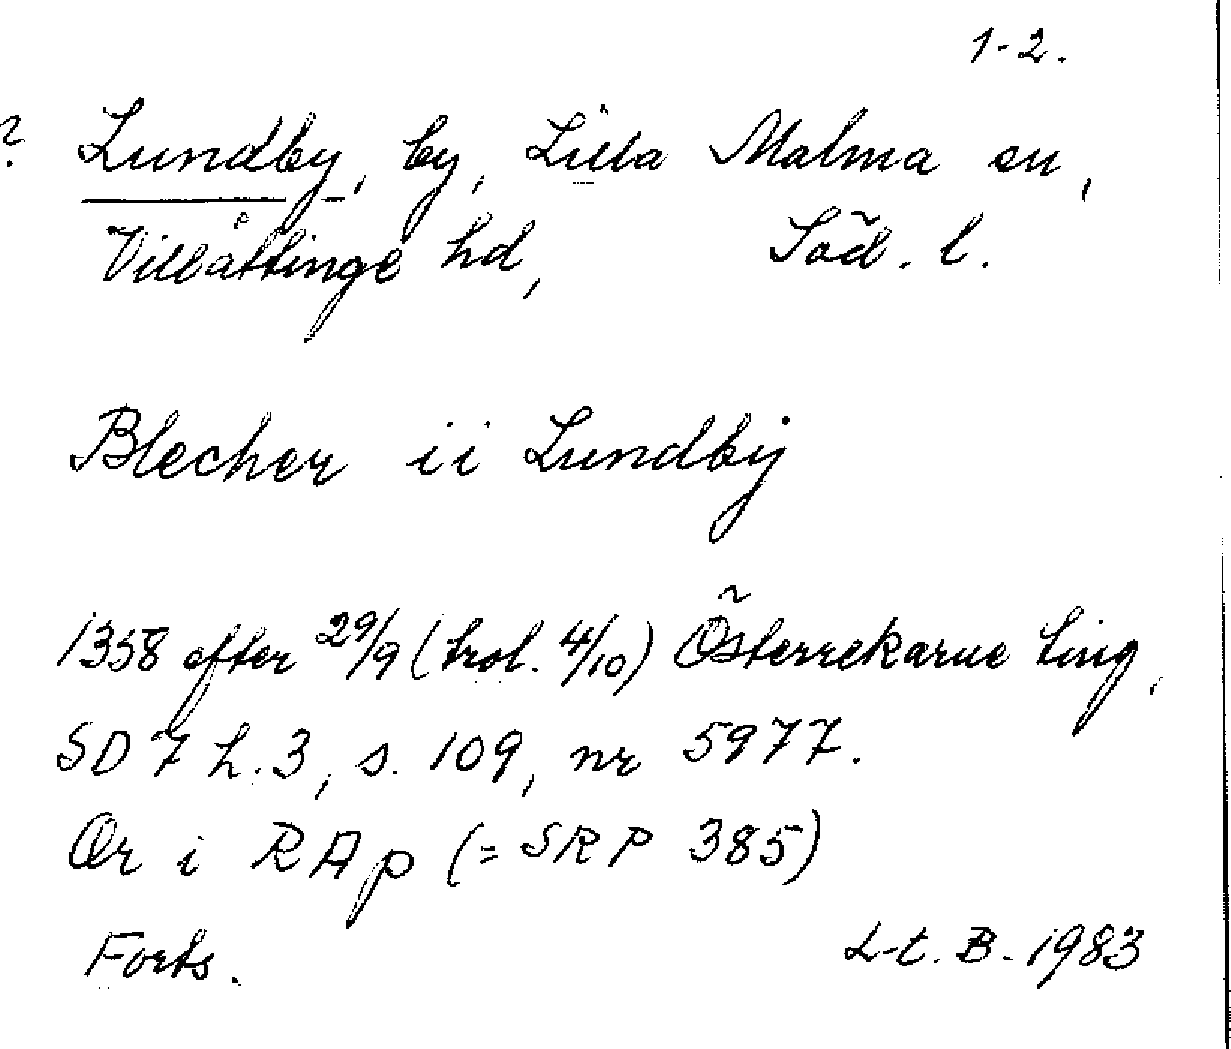 1-2.
? Lundby, by, Lilla Malma sn,
Villåttinge hd, Söd. l.
Blecher ii Lundby
1358 efter 29/9 (trol. 4/10) Österrekarne ting,
SD 7 h. 3, s. 109, nr 5977.
Or i RAp (= SRP 385)
Forts. L-t. B. 1983